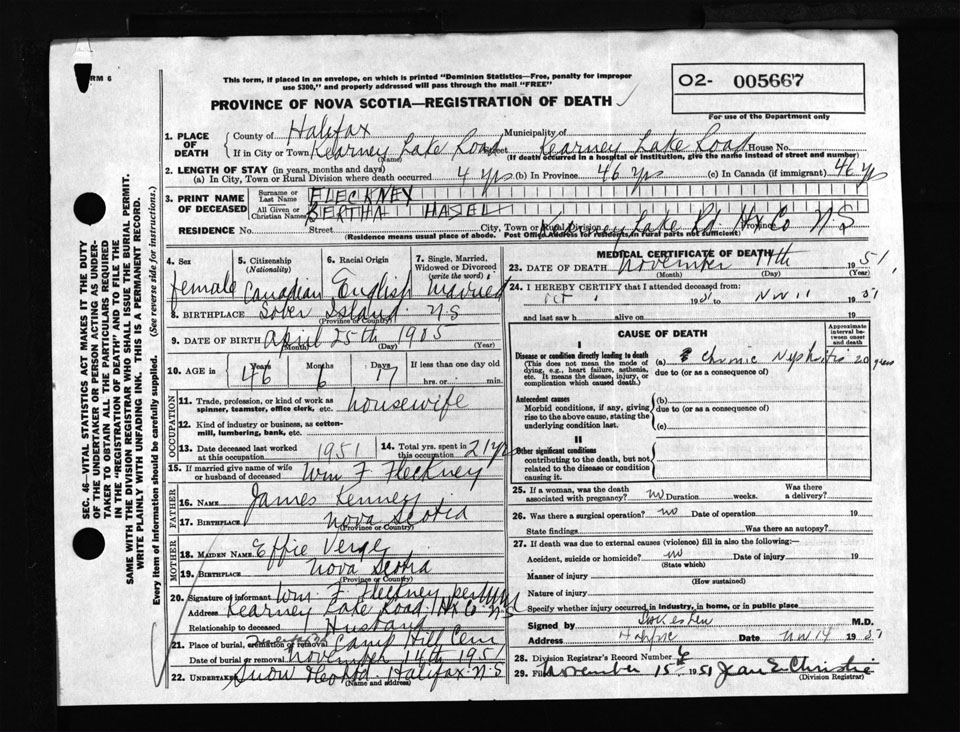 RM 6
This form, if placed in an envelope, on which is printed "Dominion Statistics—Free, penalty for improper
use $300," and properly addressed will pass through the mail "FREE"
O2- 005667
For use of the Department only
PROVINCE OF NOVA SCOTIA—REGISTRATION OF DEATH
1. PLACE OF DEATH
County of Halifax Municipality of
If in City or Town Kearney Lake Road Street Kearney Lake Road House No.
(Name) (If death occurred in a hospital or institution, give the name instead of street and number)
2. LENGTH OF STAY (in years, months and days)
(a) In City, Town or Rural Division where death occurred 4 yrs (b) In Province 46 yrs (c) In Canada (if immigrant) 46 yrs
3. PRINT NAME OF DECEASED
Surname or Last Name FLECKNEY
All Given or Christian Names BERTHA HASEL
RESIDENCE No. Street City, Town or Rural Division Kearney Lake Rd Hx Co Province N S
(Residence means usual place of abode. Post Office Address for residents in rural parts not sufficient)
4. Sex female
5. Citizenship (Nationality) Canadian
6. Racial Origin English
7. Single, Married, Widowed or Divorced (write the word) Married
8. BIRTHPLACE Sober Island N.S
(Province or Country)
9. DATE OF BIRTH April 25th 1905
(Month) (Day) (Year)
10. AGE in Years 46 Months 6 Days 17 If less than one day old
hrs. or min.
OCCUPATION
11. Trade, profession, or kind of work as
spinner, teamster, office clerk, etc. housewife
12. Kind of industry or business, as cotton-
mill, lumbering, bank, etc.
13. Date deceased last worked at this occupation 1951
14. Total yrs. spent in this occupation 21 yrs
15. If married give name of wife or husband of deceased Wm F Fleckney
FATHER
16. NAME James Lenney
17. BIRTHPLACE Nova Scotia
(Province or Country)
MOTHER
18. MAIDEN NAME Effie Verge
19. BIRTHPLACE Nova Scotia
(Province or Country)
20. Signature of informant Wm F Fleckney per
Address Kearney Lake Road, Hx Co N S
Relationship to deceased Husband
21. Place of burial, cremation or removal Camp Hill Cem
Date of burial or removal November 14th 1951
22. UNDERTAKER Snow Halifax N.S
(Name and address)
MEDICAL CERTIFICATE OF DEATH
23. DATE OF DEATH November 11th 1951
(Month) (Day) (Year)
24. I HEREBY CERTIFY that I attended deceased from:
Oct 1951 to Nov 11 1951
and last saw h alive on 19
CAUSE OF DEATH
Approximate interval between onset and death
I
Disease or condition directly leading to death
(This does not mean the mode of dying, e.g., heart failure, asthenia, etc. It means the disease, injury, or complication which caused death.)
(a) Chronic Nephritis 20 years
due to (or as a consequence of)
Antecedent causes
Morbid conditions, if any, giving rise to the above cause, stating the underlying condition last.
(b)
due to (or as a consequence of)
(c)
II
Other significant conditions
contributing to the death, but not related to the disease or condition causing it.
25. If a woman, was the death associated with pregnancy? no Duration weeks. Was there a delivery?
26. Was there a surgical operation? no Date of operation 19
State findings Was there an autopsy?
27. If death was due to external causes (violence) fill in also the following:—
Accident, suicide or homicide? no Date of injury 19
(State which)
Manner of injury
(How sustained)
Nature of injury
Specify whether injury occurred in industry, in home, or in public place
Signed by M.D.
Address Date Nov 14 1951
28. Division Registrar's Record Number
29. Filed November 15 1951 Jean E. Christie
(Division Registrar)
SEC. 46—VITAL STATISTICS ACT MAKES IT THE DUTY
OF THE UNDERTAKER OR PERSON ACTING AS UNDER-
TAKER TO OBTAIN ALL THE PARTICULARS REQUIRED
IN THE "REGISTRATION OF DEATH" AND TO FILE THE
SAME WITH THE DIVISION REGISTRAR WHO SHALL ISSUE THE BURIAL PERMIT.
WRITE PLAINLY WITH UNFADING INK. THIS IS A PERMANENT RECORD.
Every item of information should be carefully supplied. (See reverse side for instructions.)